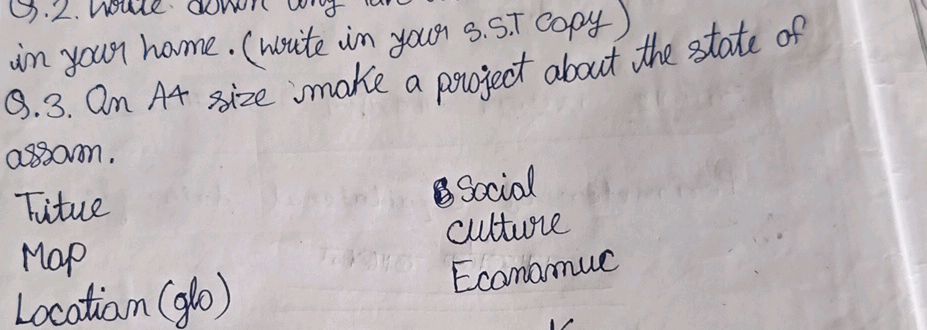 Q.2. Write down any
in your home. (write in your S.S.T copy)
Q.3. On A4 size make a project about the state of
assam.
Titue
Map
Location (glo)
Social
culture
Econamuc